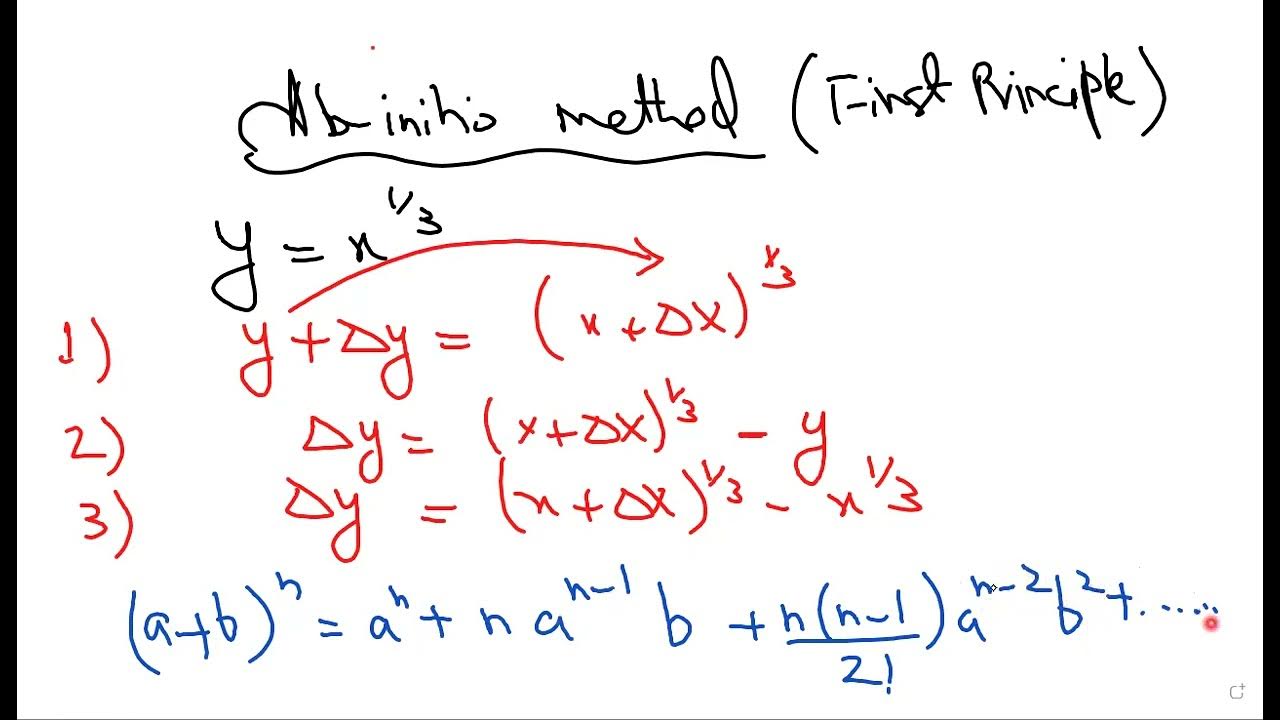 Abinitio method (First Principle)
y = x^{1/3}
1) y + Δy = (x + Δx)^{1/3}
2) Δy = (x + Δx)^{1/3} - y
3) Δy = (x + Δx)^{1/3} - x^{1/3}
(a+b)^n = a^n + n a^{n-1} b + \frac{n(n-1)}{2!} a^{n-2} b^2 + ......